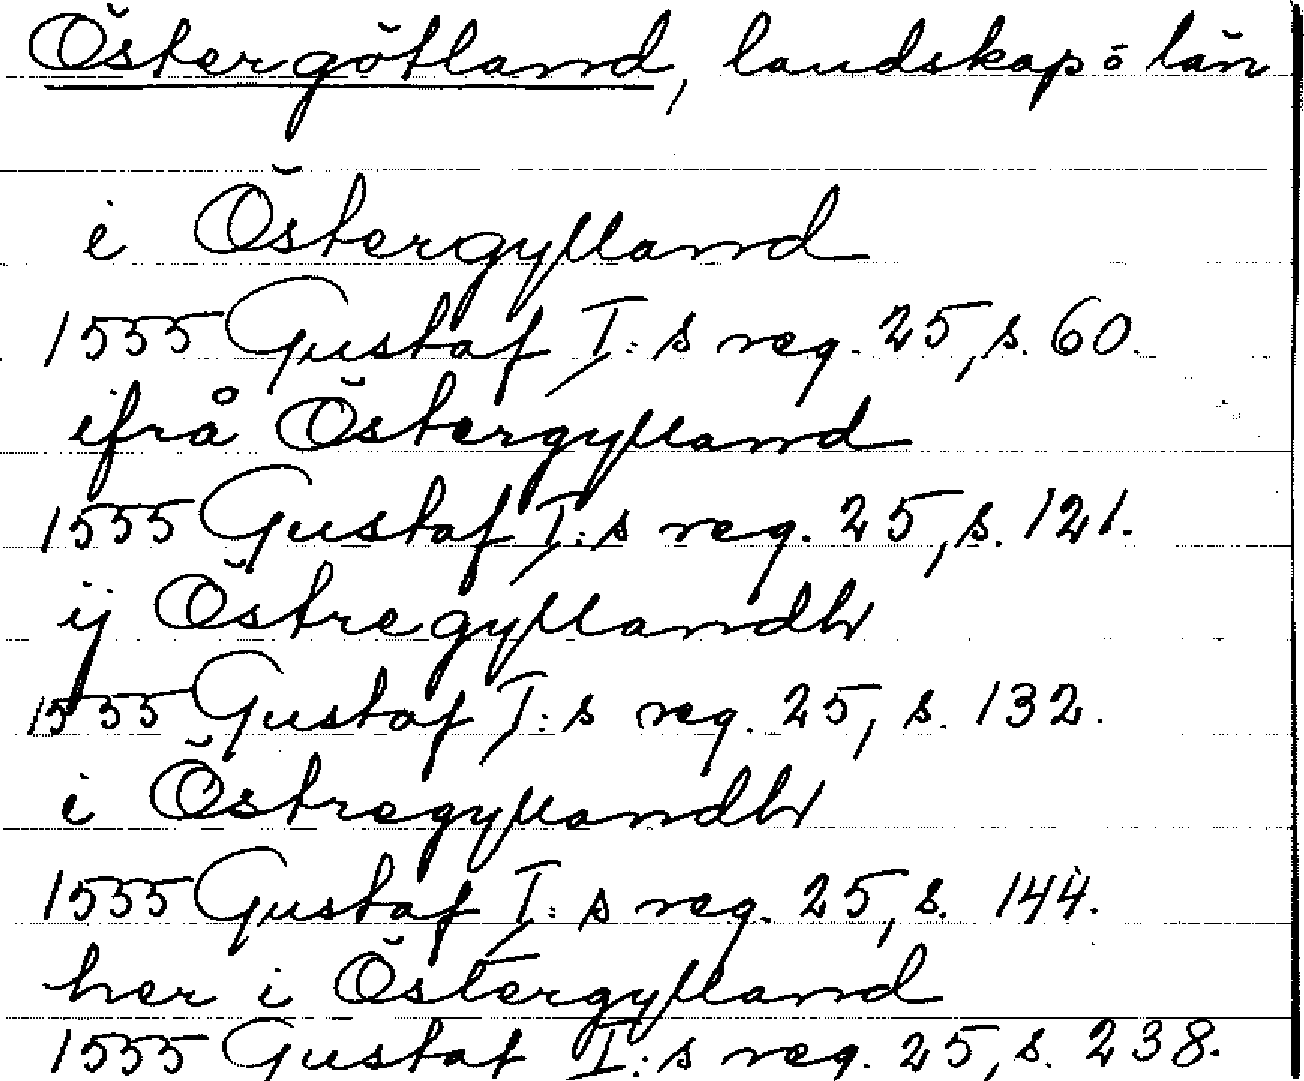 Östergötland, landskap o län
i Östergylland
1555 Gustaf I:s reg. 25, s. 60.
ifrå Östergylland
1555 Gustaf I:s reg. 25, s. 121.
ij Östregyllandh
1555 Gustaf I:s reg. 25, s. 132.
i Östregyllandh
1555 Gustaf I:s reg. 25, s. 144.
her i Östergylland
1555 Gustaf I:s reg. 25, s. 238.